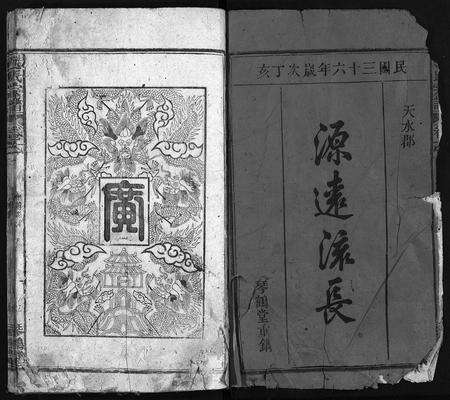 民國三十六年歲次丁亥
天水郡
源遠流長
琴鶴堂重鐫
廣